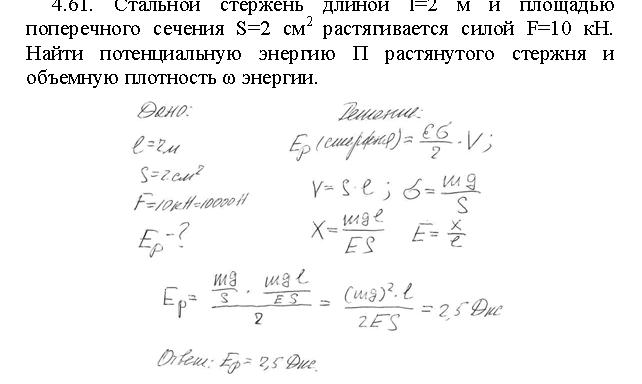 4.61. Стальной стержень длиной l=2 м и площадью
поперечного сечения S=2 см² растягивается силой F=10 кН.
Найти потенциальную энергию П растянутого стержня и
объемную плотность ω энергии.
Дано:
l=2м
S=2см²
F=10кН=10000Н
Eр-?
Решение:
Eр(стержня)= εσ/2 · V;
V=S·l; σ= mg/S
X= mgl/ES E= x/l
Eр= (mg/S · mgl/ES)/2 = (mg)²·l/2ES = 2,5 Дж
Ответ: Eр= 2,5 Дж.